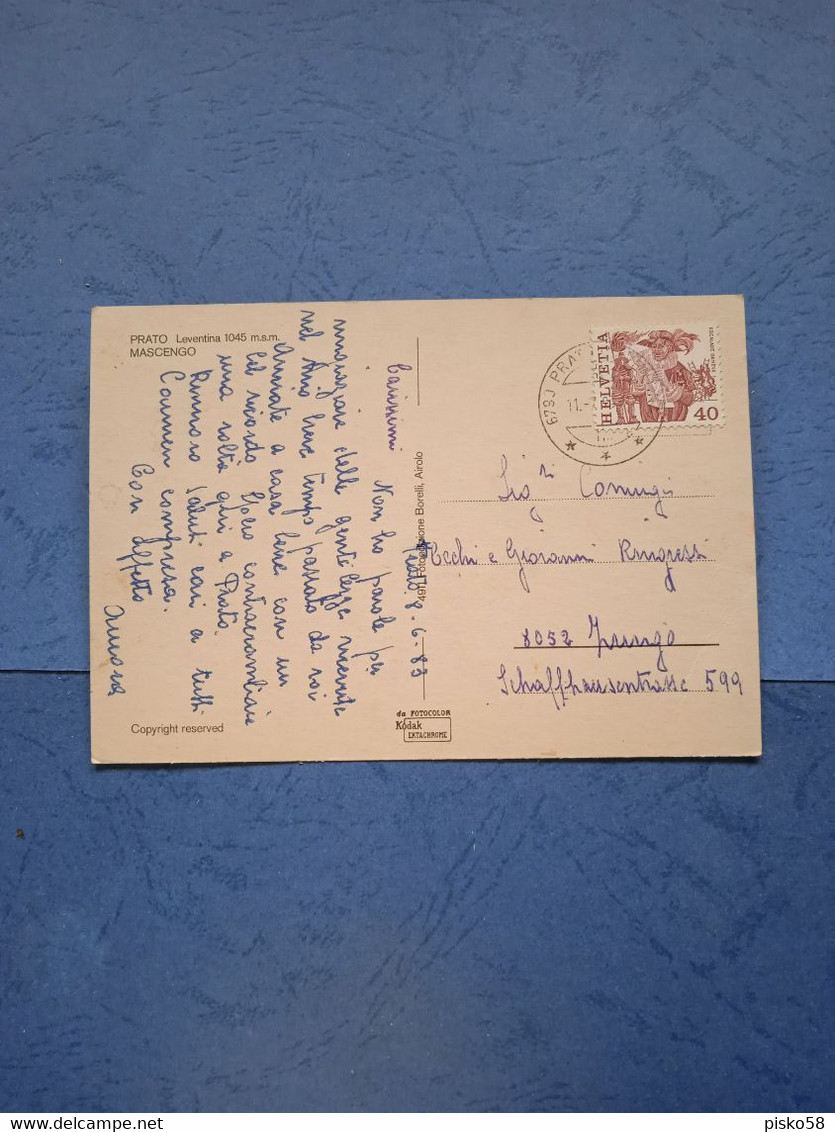 PRATO Leventina 1045 m.s.m.
MASCENGO
Prato 8-6-83
Carissimi
Non ho parole per
ringraziare delle gentilezze ricevute
nel breve tempo passato da voi
arrivate a casa bene con un
bel ricordo
una volta qui a Prato.
Rinnovo saluti cari a tutti
Carmen compresa.
Con affetto
491 Fotoedizione Borelli, Airolo
da FOTOCOLOR
Kodak
EKTACHROME
Copyright reserved
6790 PRAT
11.-
HELVETIA
40
Sig.ri Coniugi
e Giovanni
8052 Zurigo
Schaffhausentrasse 599
pisko58